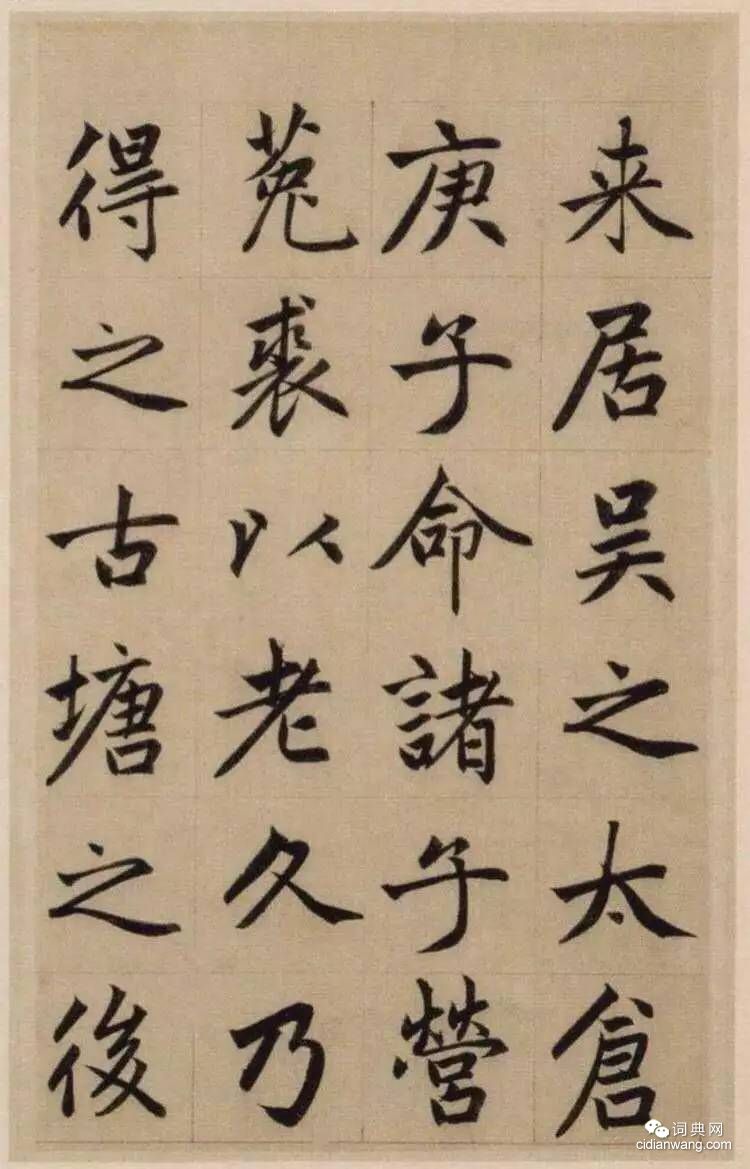 来居吴之太倉
庚子命諸子營
菟裘以老久乃
得之古塘之後
词典网
cidianwang.com